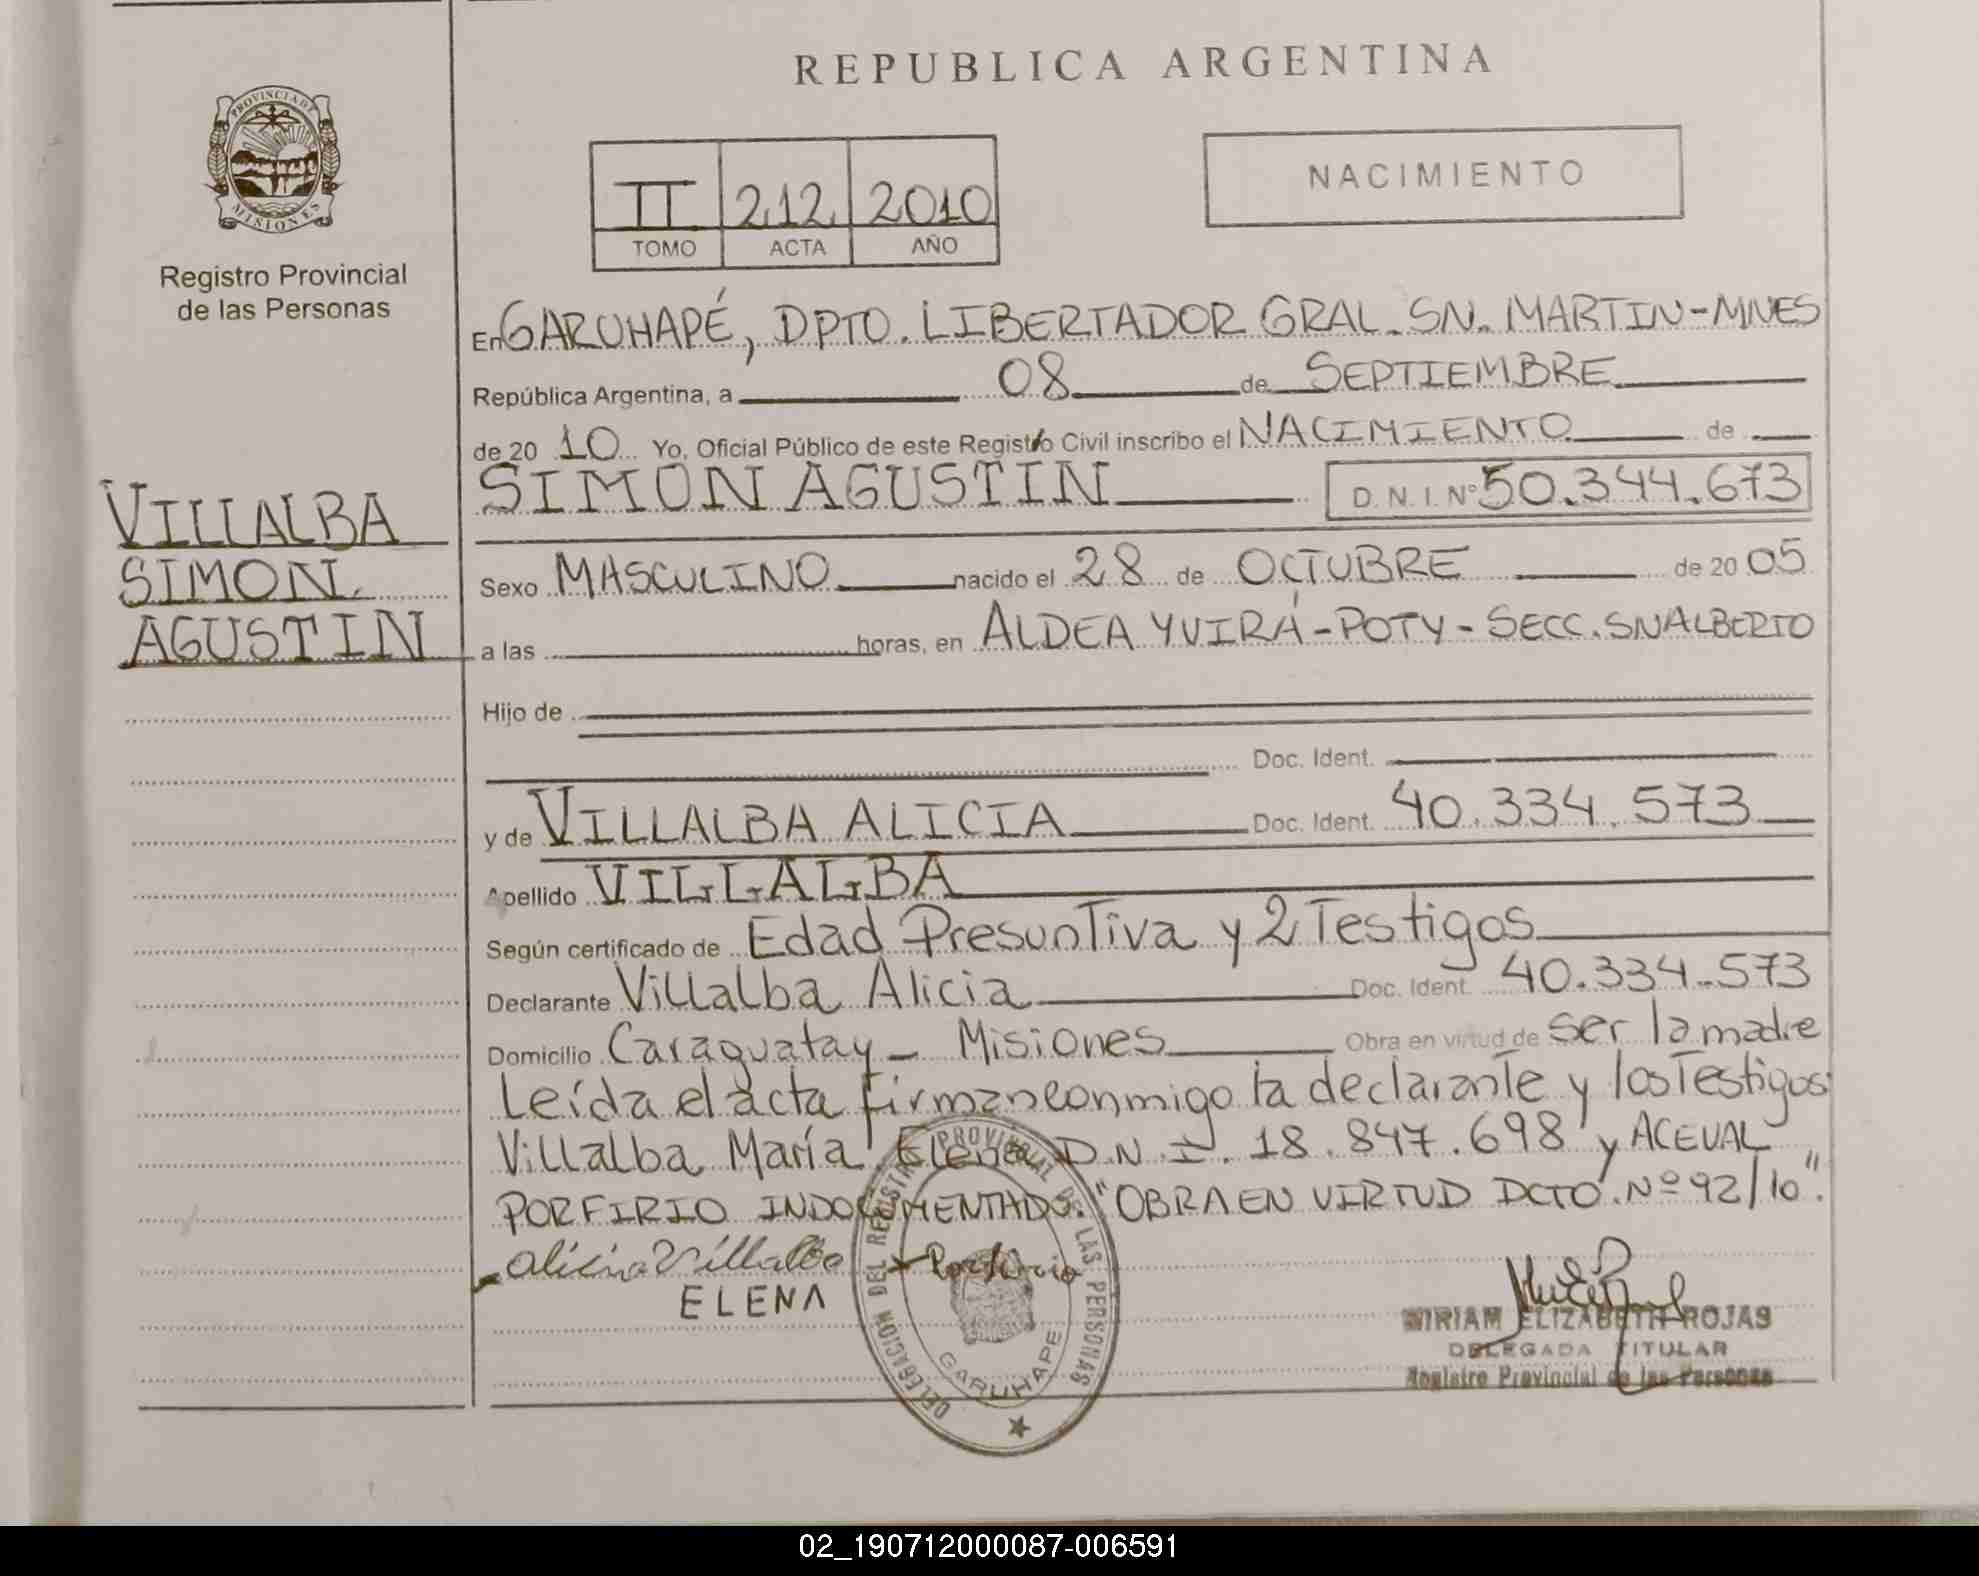 REPUBLICA ARGENTINA
PROVINCIA DE
MISIONES
Registro Provincial
de las Personas
II 212 2010
TOMO ACTA AÑO
NACIMIENTO
En GARUHAPÉ, DPTO. LIBERTADOR GRAL. SN. MARTIN-MNES
República Argentina, a 08 de SEPTIEMBRE
de 20 10 Yo, Oficial Público de este Registro Civil inscribo el NACIMIENTO de
SIMON AGUSTIN D.N.I. Nº 50.344.673
VILLALBA
SIMON
AGUSTIN
Sexo MASCULINO nacido el 28 de OCTUBRE de 20 05
a las horas, en ALDEA YVIRÁ-POTY-SECC. SN ALBERTO
Hijo de
Doc. Ident.
y de VILLALBA ALICIA Doc. Ident. 40.334.573
Apellido VILLALBA
Según certificado de Edad Presuntiva y 2 Testigos
Declarante Villalba Alicia Doc. Ident. 40.334.573
Domicilio Caraguatay - Misiones Obra en virtud de ser la madre
Leída el acta firman conmigo la declarante y los Testigos
Villalba María Elena D.N.I. 18.847.698 y ACEVAL
PORFIRIO INDOCUMENTADO. "OBRA EN VIRTUD DCTO. Nº 92/10".
Alicia Villalba Porfirio
ELENA
DELEGACION DEL REGISTRO PROVINCIAL DE LAS PERSONAS
GARUHAPE
MIRIAM ELIZABETH ROJAS
DELEGADA TITULAR
Registro Provincial de las Personas
02_190712000087-006591